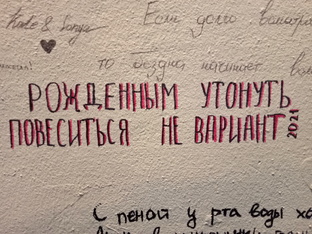 Kate & Sonya
Если долго
то бездна начнает
РОЖДЕННЫМ УТОНУТЬ
ПОВЕСИТЬСЯ НЕ ВАРИАНТ 2021
С пеной у рта воды